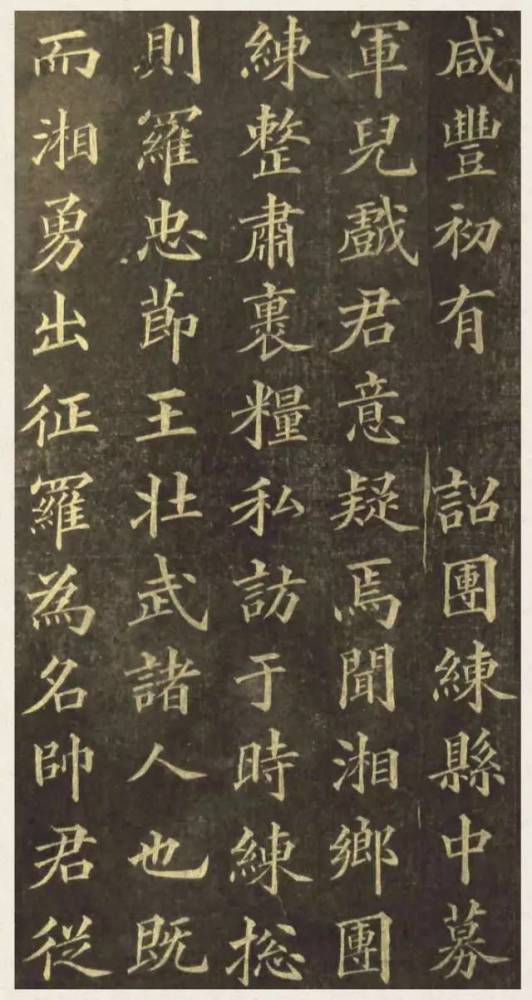 咸豐初有 詔團練縣中募
軍兒戲君意疑焉聞湘鄉團
練整肅裹糧私訪于時練捴
則羅忠節王壯武諸人也既
而湘勇出征羅為名帥君從